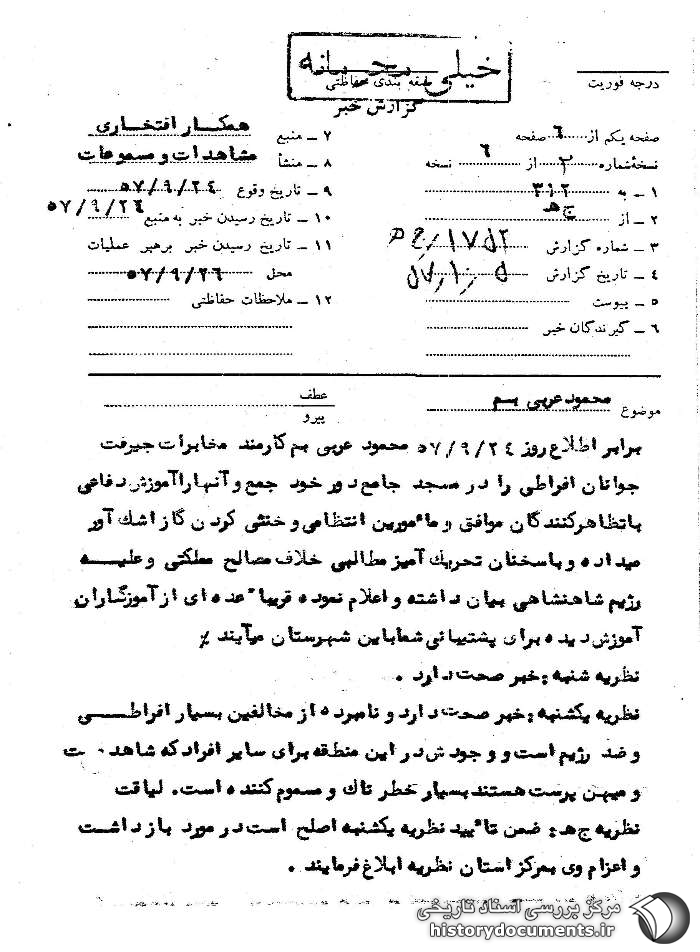 خیلی محرمانه
طبقه بندی حفاظتی
گزارش خبر
درجه فوریت
صفحه یکم از ۶ صفحه
نسخهٔ شماره ۲ از ۶ نسخه
۱ ــ به ۳۱۲
۲ ــ از ج هـ
۳ ــ شماره گزارش
۴ ــ تاریخ گزارش
۵ ــ پیوست
۶ ــ گیرندگان خبر
۷ ــ منبع همکار افتخاری
۸ ــ منشأ مشاهدات و مسموعات
۹ ــ تاریخ وقوع ۵۷/۹/۲۴
۱۰ ــ تاریخ رسیدن خبر به منبع ۵۷/۹/۲۴
۱۱ ــ تاریخ رسیدن خبر برهبر عملیات
محل ۵۷/۹/۲۶
۱۲ ــ ملاحظات حفاظتی
موضوع محمود عربی بسم
عطف
پیرو
برابر اطلاع روز ۵۷/۹/۲۴ محمود عربی بم کارمند مخابرات جیرفت
جوانان افراطی را در مسجد جامع دور خود جمع و آنها را آموزش دفاعی
با تظاهرکنندگان موافق و مأمورین انتظامی و خنثی کردن گاز اشک آور
میداده و با سخنان تحریک آمیز مطالبی خلاف مصالح مملکتی و علیه
رژیم شاهنشاهی بیان داشته و اعلام نموده قریبا" عده ای از آموزگاران
آموزش دیده برای پشتیبانی شما باین شهرستان میآیند ٪
نظریه شنبه : خبر صحت دارد .
نظریه یکشنبه : خبر صحت دارد و نامبرده از مخالفین بسیار افراطی
و ضد رژیم است و وجودش در این منطقه برای سایر افراد که شاهدوست
و میهن پرست هستند بسیار خطرناک و مسموم کننده است. لیاقت
نظریه ج هـ : ضمن تأیید نظریه یکشنبه اصلح است در مورد بازداشت
و اعزام وی بمرکز استان نظریه ابلاغ فرمایند .
مرکز بررسی اسناد تاریخی
historydocuments.ir